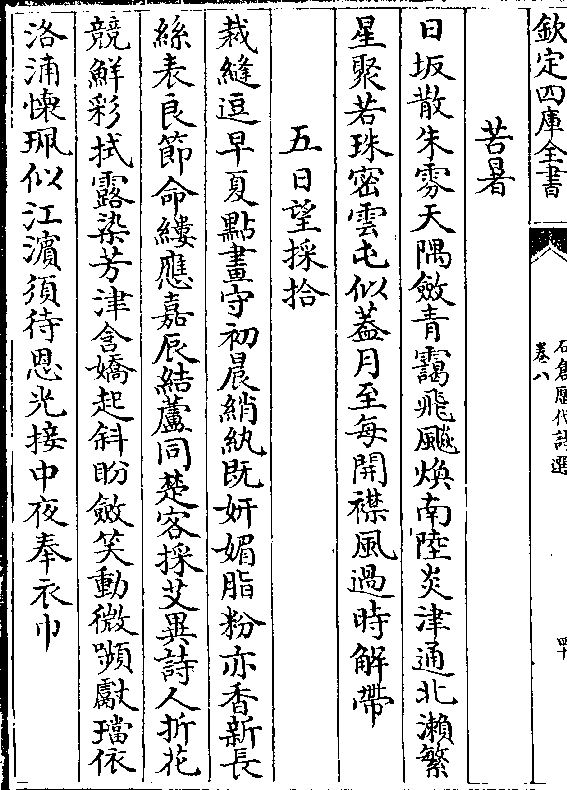 欽定四庫全書
苦暑
日坂散朱雰天隅斂青靄飛飈煥南陸炎津通北瀨繁
星聚若珠密雲屯似蓋月至每開襟風過時解帶
五日望採拾
裁縫逗早夏點畫守初晨綃紈既妍媚脂粉亦香新長
絲表良節命縷應嘉辰結蘆同楚客採艾異詩人折花
競鮮彩拭露染芳津含嬌起斜盻斂笑動微嚬獻璫依
洛浦懐珮似江濵須待恩光接中夜奉衣巾
石倉歴代詩選
卷八
四十